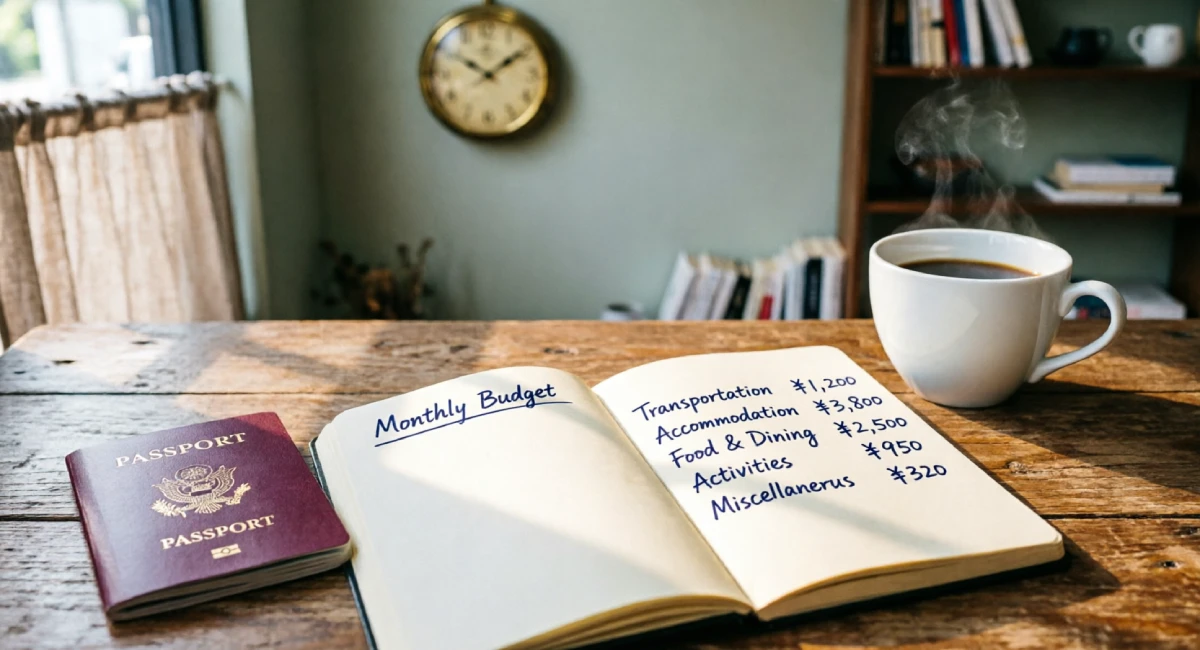 PASSPORT
PASSPORT
Monthly Budget
Transportation ¥1,200
Accommodation ¥3,800
Food & Dining ¥2,500
Activities ¥950
Miscellanerus ¥320